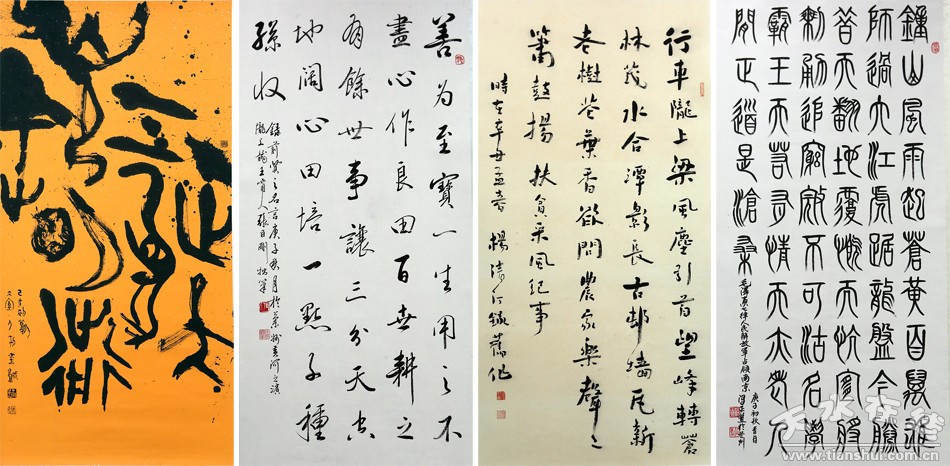 善为至寶一生用之不
盡心作良田百世耕之
有餘世事讓三分天空
地阔心田培一點子種
孫收
錄前賢之名言庚子
行車隴上梁風塵引首望峰轉蒼
林茂水合潭影長古邨墙瓦新
老樹花葉香欲問農家樂聲々
簫鼓揚 扶貧采風紀事
時在辛丑孟春 楊清汀錄舊作
鍾山風雨起蒼黃百萬雄
師過大江虎踞龍盤今勝
昔天翻地覆慨而慷宜將
剩勇追窮寇不可沽名學
霸王天若有情天亦老人
間正道是滄桑
毛澤東七律人民解放軍占領南京
庚子初秋
天水在线
www.tianshui.com.cn